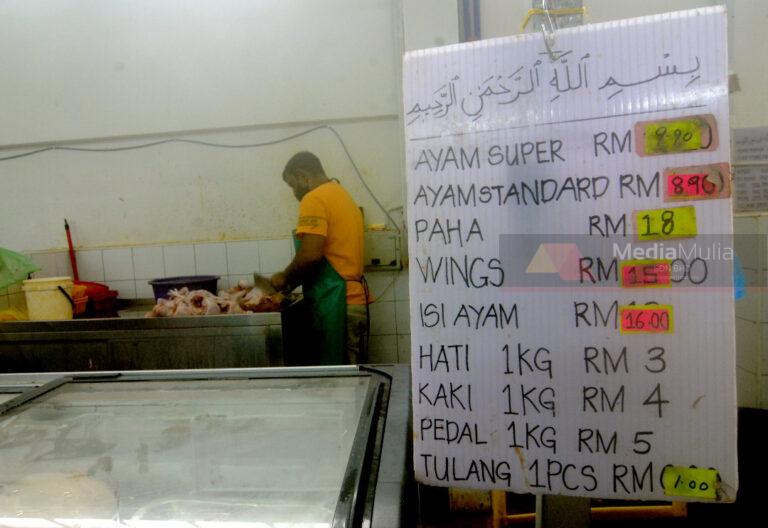 بِسْمِ اللَّهِ الرَّحْمَنِ الرَّحِيمِ
AYAM SUPER RM 9.90
AYAM STANDARD RM 8.90
PAHA RM 18
WINGS RM 15.00
ISI AYAM RM 16.00
HATI 1KG RM 3
KAKI 1KG RM 4
PEDAL 1KG RM 5
TULANG 1PCS RM 1.00
MediaMulia
SDN BHD